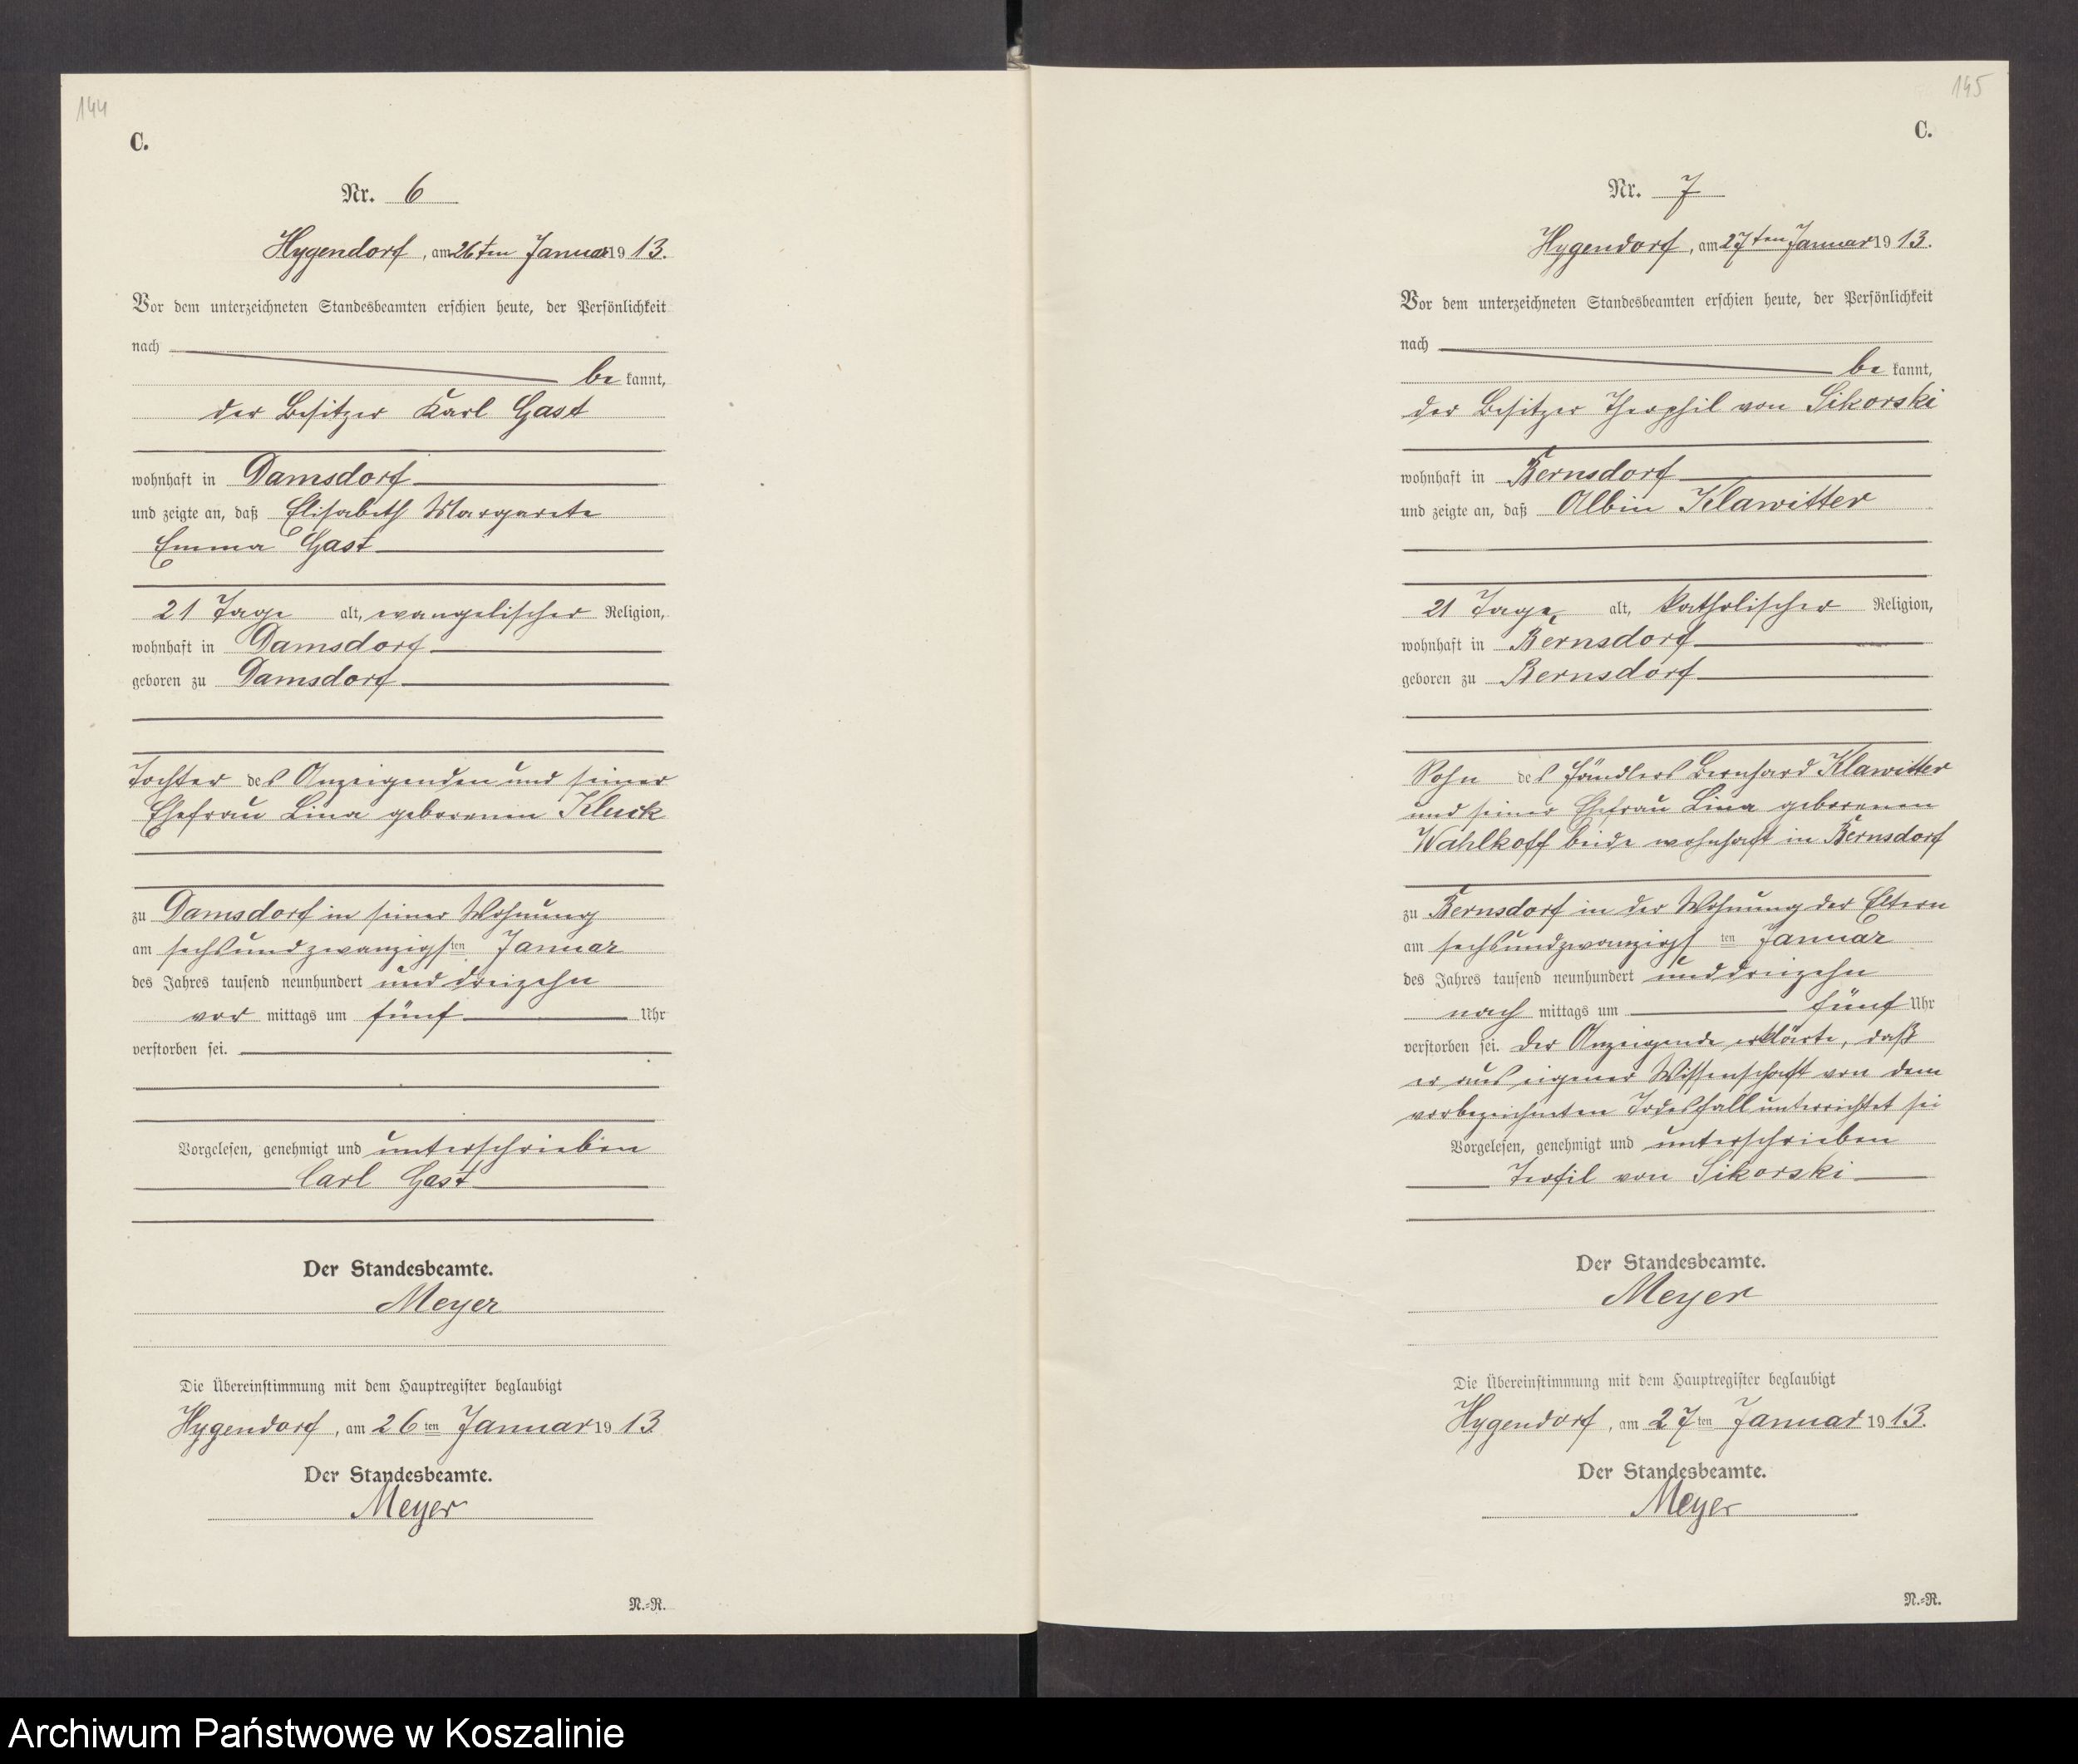 144
C.
Nr. 6
Hygendorf, am 26ten Januar 1913.
Vor dem unterzeichneten Standesbeamten erschien heute, der Persönlichkeit
nach
be kannt,
der Besitzer Karl Gast
wohnhaft in Damsdorf
und zeigte an, daß Elisabeth Margarete
Emma Gast
21 Tage alt, evangelischer Religion,
wohnhaft in Damsdorf
geboren zu Damsdorf
Tochter des Anzeigenden und seiner
Ehefrau Lina geborenen Kluck
zu Damsdorf in seiner Wohnung
am sechsundzwanzigsten Januar
des Jahres tausend neunhundert und dreizehn
vor mittags um fünf Uhr
verstorben sei.
Vorgelesen, genehmigt und unterschrieben
Carl Gast
Der Standesbeamte.
Meyer
Die Übereinstimmung mit dem Hauptregister beglaubigt
Hygendorf, am 26ten Januar 1913
Der Standesbeamte.
Meyer
N.-R.
145
C.
Nr. 7
Hygendorf, am 27ten Januar 1913.
Vor dem unterzeichneten Standesbeamten erschien heute, der Persönlichkeit
nach
be kannt,
der Besitzer Theophil von Sikorski
wohnhaft in Bernsdorf
und zeigte an, daß Albin Klawitter
21 Tage alt, katholischer Religion,
wohnhaft in Bernsdorf
geboren zu Bernsdorf
Sohn des Händlers Bernhard Klawitter
und seiner Ehefrau Lina geborenen
Wahlkoff beide wohnhaft in Bernsdorf
zu Bernsdorf in der Wohnung der Eltern
am sechsundzwanzigsten Januar
des Jahres tausend neunhundert und dreizehn
nach mittags um fünf Uhr
verstorben sei. Der Anzeigende erklärte, daß
er aus eigener Wissenschaft von dem
vorbezeichneten Todesfall unterrichtet sei
Vorgelesen, genehmigt und unterschrieben
Teofil von Sikorski
Der Standesbeamte.
Meyer
Die Übereinstimmung mit dem Hauptregister beglaubigt
Hygendorf, am 27ten Januar 1913.
Der Standesbeamte.
Meyer
N.-R.
Archiwum Państwowe w Koszalinie